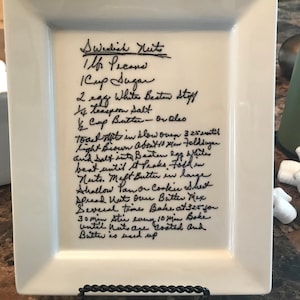 Swedish Nuts
1 lb Pecans
1 Cup Sugar
2 egg White Beaten Stiff
teaspoon Salt
½ Cup Butter - or Oleo
Toast Nuts in Slow Oven 325 until
Light Brown About 10 min Fold Sugar
and Salt into Beaten egg Whites
beat until it Peaks Fold in
Nuts. Melt Butter in large
Shallow Pan or Cookie Sheet
Spread Nuts Over Butter Mix
Several Times Bake at 325 for
30 min Stir every 10 min Bake
until Nuts are Coated and
Butter is used up